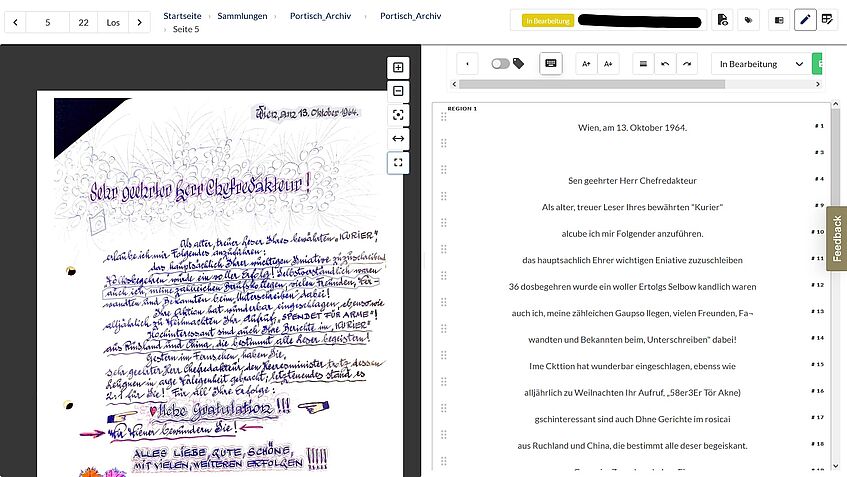 5 22 Los
Startseite › Sammlungen › Portisch_Archiv › Portisch_Archiv
› Seite 5
In Bearbeitung
In Bearbeitung
Wien, am 13. Oktober 1964.
Sehr geehrter Herr Chefredakteur!
Als alter, treuer Leser Ihres bewährten „KURIER",
erlaube ich mir Folgendes anzuführen:
das hauptsächlich Ihrer wichtigen Iniative zuzuschreibende
Volksbegehren wurde ein voller Erfolg! Selbstverständlich waren
auch ich, meine zahlreichen Berufskollegen, vielen Freunden, Ver-
wandten und Bekannten beim „Unterschreiben" dabei!
Ihre Aktion hat wunderbar eingeschlagen, ebenso wie
alljährlich zu Weihnachten Ihr Aufruf, „SPENDET FÜR ARME"!
Hochinteressant sind auch Ihre Berichte im „KURIER"
aus Rußland und China, die bestimmt alle Leser begeistern!
Gestern im Fernsehen, haben Sie,
sehr geehrter Herr Chefredakteur, den Heeresminister trotz dessen
in arge Verlegenheit gebracht; letztenendes stand es
für Sie! Für all' Ihre Erfolge:
Hohe Gratulation!!!
Wir Wiener bewundern Sie!
ALLES LIEBE, GUTE, SCHÖNE,
MIT VIELEN, WEITEREN ERFOLGEN!!!!!
REGION 1
Wien, am 13. Oktober 1964. # 1
# 3
Sen geehrter Herr Chefredakteur # 4
Als alter, treuer Leser Ihres bewährten "Kurier" # 9
alcube ich mir Folgender anzuführen. # 10
das hauptsachlich Ehrer wichtigen Eniative zuzuschleiben # 11
36 dosbegehren wurde ein woller Ertolgs Selbow kandlich waren # 12
auch ich, meine zähleichen Gaupso llegen, vielen Freunden, Fa¬ # 13
wandten und Bekannten beim, Unterschreiben" dabei! # 14
Ime Ckttion hat wunderbar eingeschlagen, ebenss wie # 15
alljährlich zu Weilnachten Ihr Aufruf, „58er3Er Tör Akne) # 16
gschinteressant sind auch Dhne Gerichte im rosicai # 17
aus Ruchland und China, die bestimmt alle deser begeiskant. # 18
Feedback